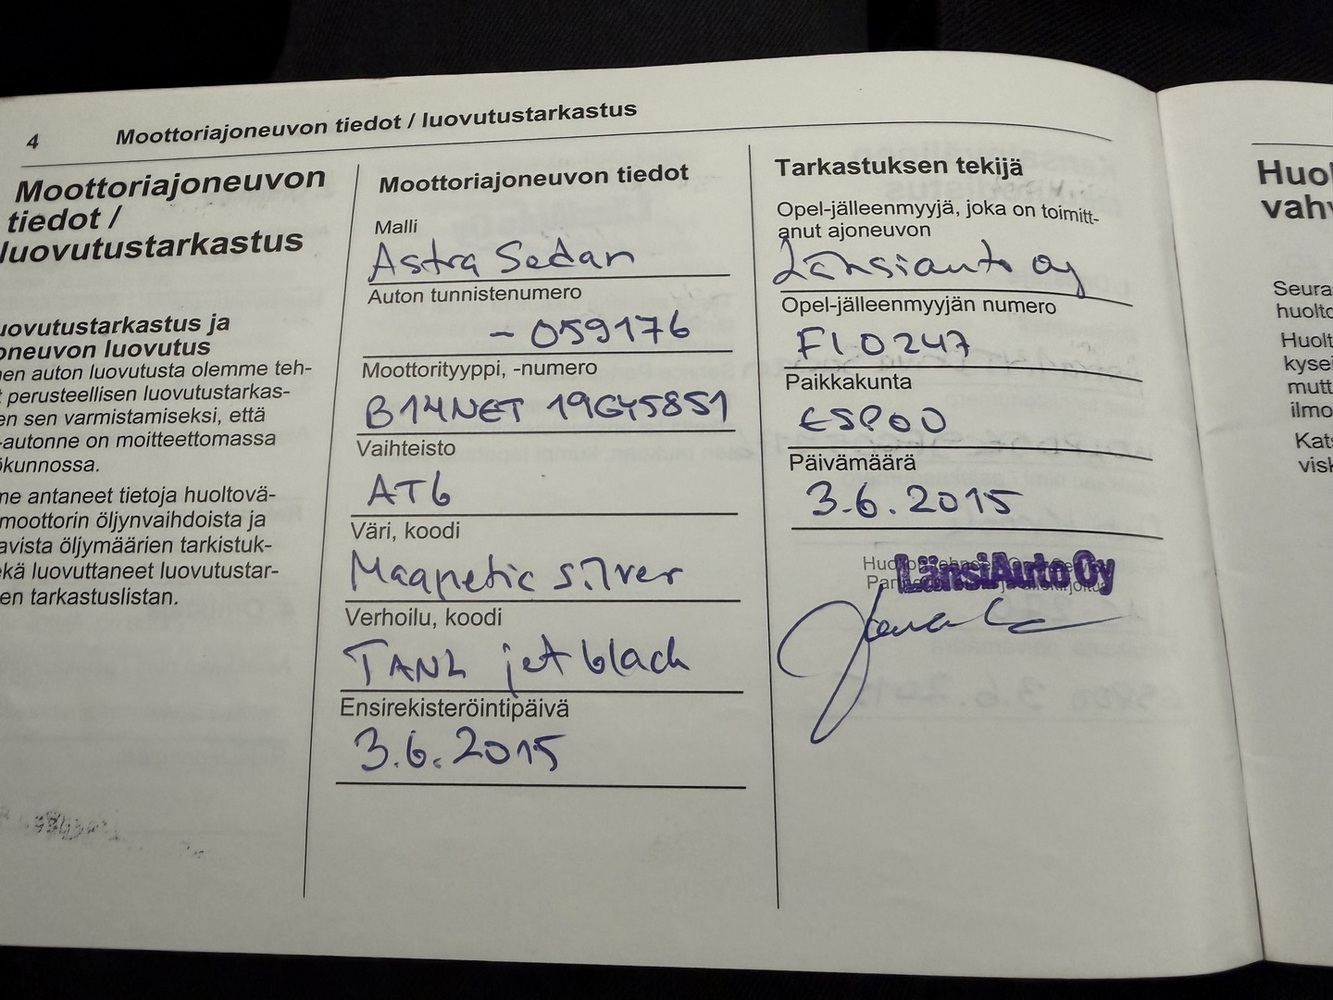 4
Moottoriajoneuvon tiedot / luovutustarkastus
Moottoriajoneuvon
tiedot /
luovutustarkastus
uovutustarkastus ja
oneuvon luovutus
nen auton luovutusta olemme teh-
t perusteellisen luovutustarkas-
en sen varmistamiseksi, että
-autonne on moitteettomassa
ökunnossa.
me antaneet tietoja huoltovä-
moottorin öljynvaihdoista ja
avista öljymäärien tarkistuk-
ekä luovuttaneet luovutustar-
en tarkastuslistan.
Moottoriajoneuvon tiedot
Malli
Astra Sedan
Auton tunnistenumero
- 059176
Moottorityyppi, -numero
B14NET 19GY5851
Vaihteisto
AT6
Väri, koodi
Magnetic silver
Verhoilu, koodi
TANL jet black
Ensirekisteröintipäivä
3.6.2015
Tarkastuksen tekijä
Opel-jälleenmyyjä, joka on toimitt-
anut ajoneuvon
Länsiauto oy
Opel-jälleenmyyjän numero
FI0247
Paikkakunta
ESPOO
Päivämäärä
3.6.2015
LänsiAuto Oy
Huol
vahv
Seura
huolto
Huolt
kysei
mutt
ilmo
Kats
visk